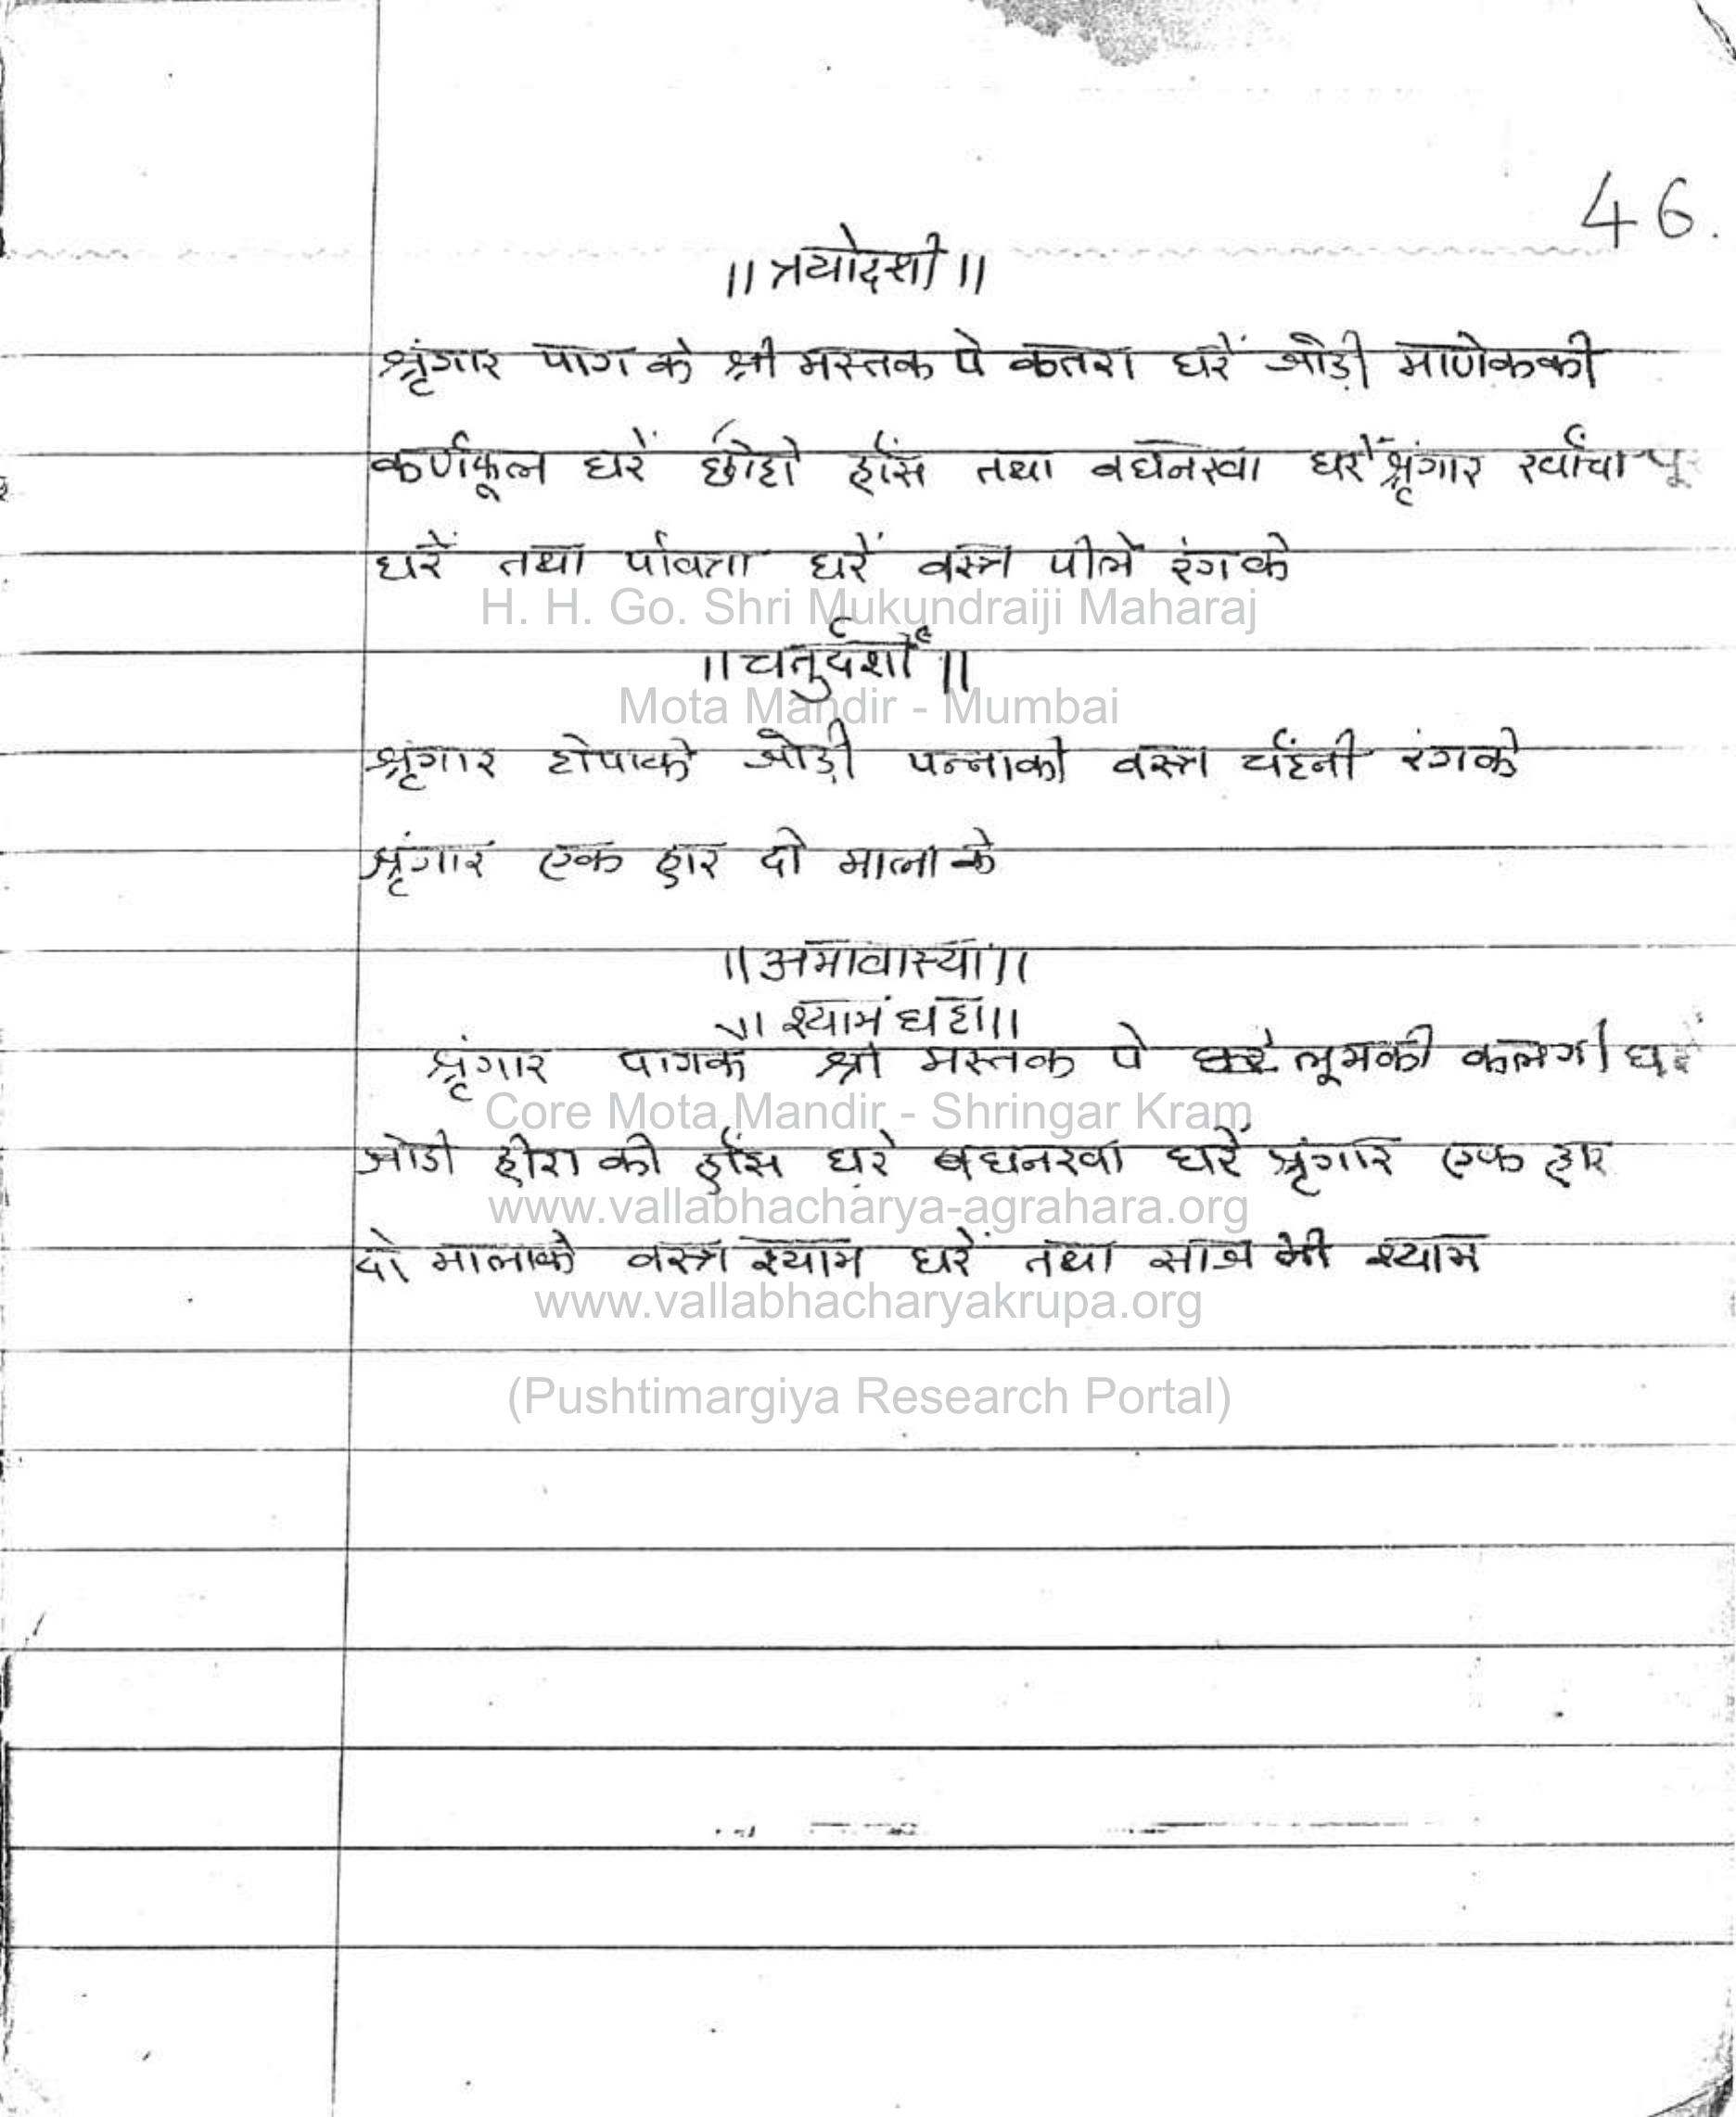 46.
॥ त्रयोदशी ॥
श्रृंगार पाग के श्री मस्तक पे कतरा धरें जोड़ी माणेककी
कर्णफूल धरें छोटो हाँस तथा बघनखा धरें श्रृंगार
धरें तथा पवित्रा धरें वस्त्र पीले रंग के
H. H. Go. Shri Mukundraiji Maharaj
॥ चतुर्दशी ॥
Mota Mandir - Mumbai
श्रृंगार टोपाको जोड़ी पन्नाकी वस्त्र रंगके
श्रृंगार एक हार दो माला के
॥ अमावास्या ॥
॥ श्याम घटा ॥
श्रृंगार पागके श्री मस्तक पे लूमकी कलगी धरें
Core Mota Mandir - Shringar Kram
जोडी हीरा की हाँस धरें बघनखा धरें श्रृंगार एक हार
www.vallabhacharya-agrahara.org
दो मालाको वस्त्र श्याम धरें तथा साज भी श्याम
www.vallabhacharyakrupa.org
(Pushtimargiya Research Portal)